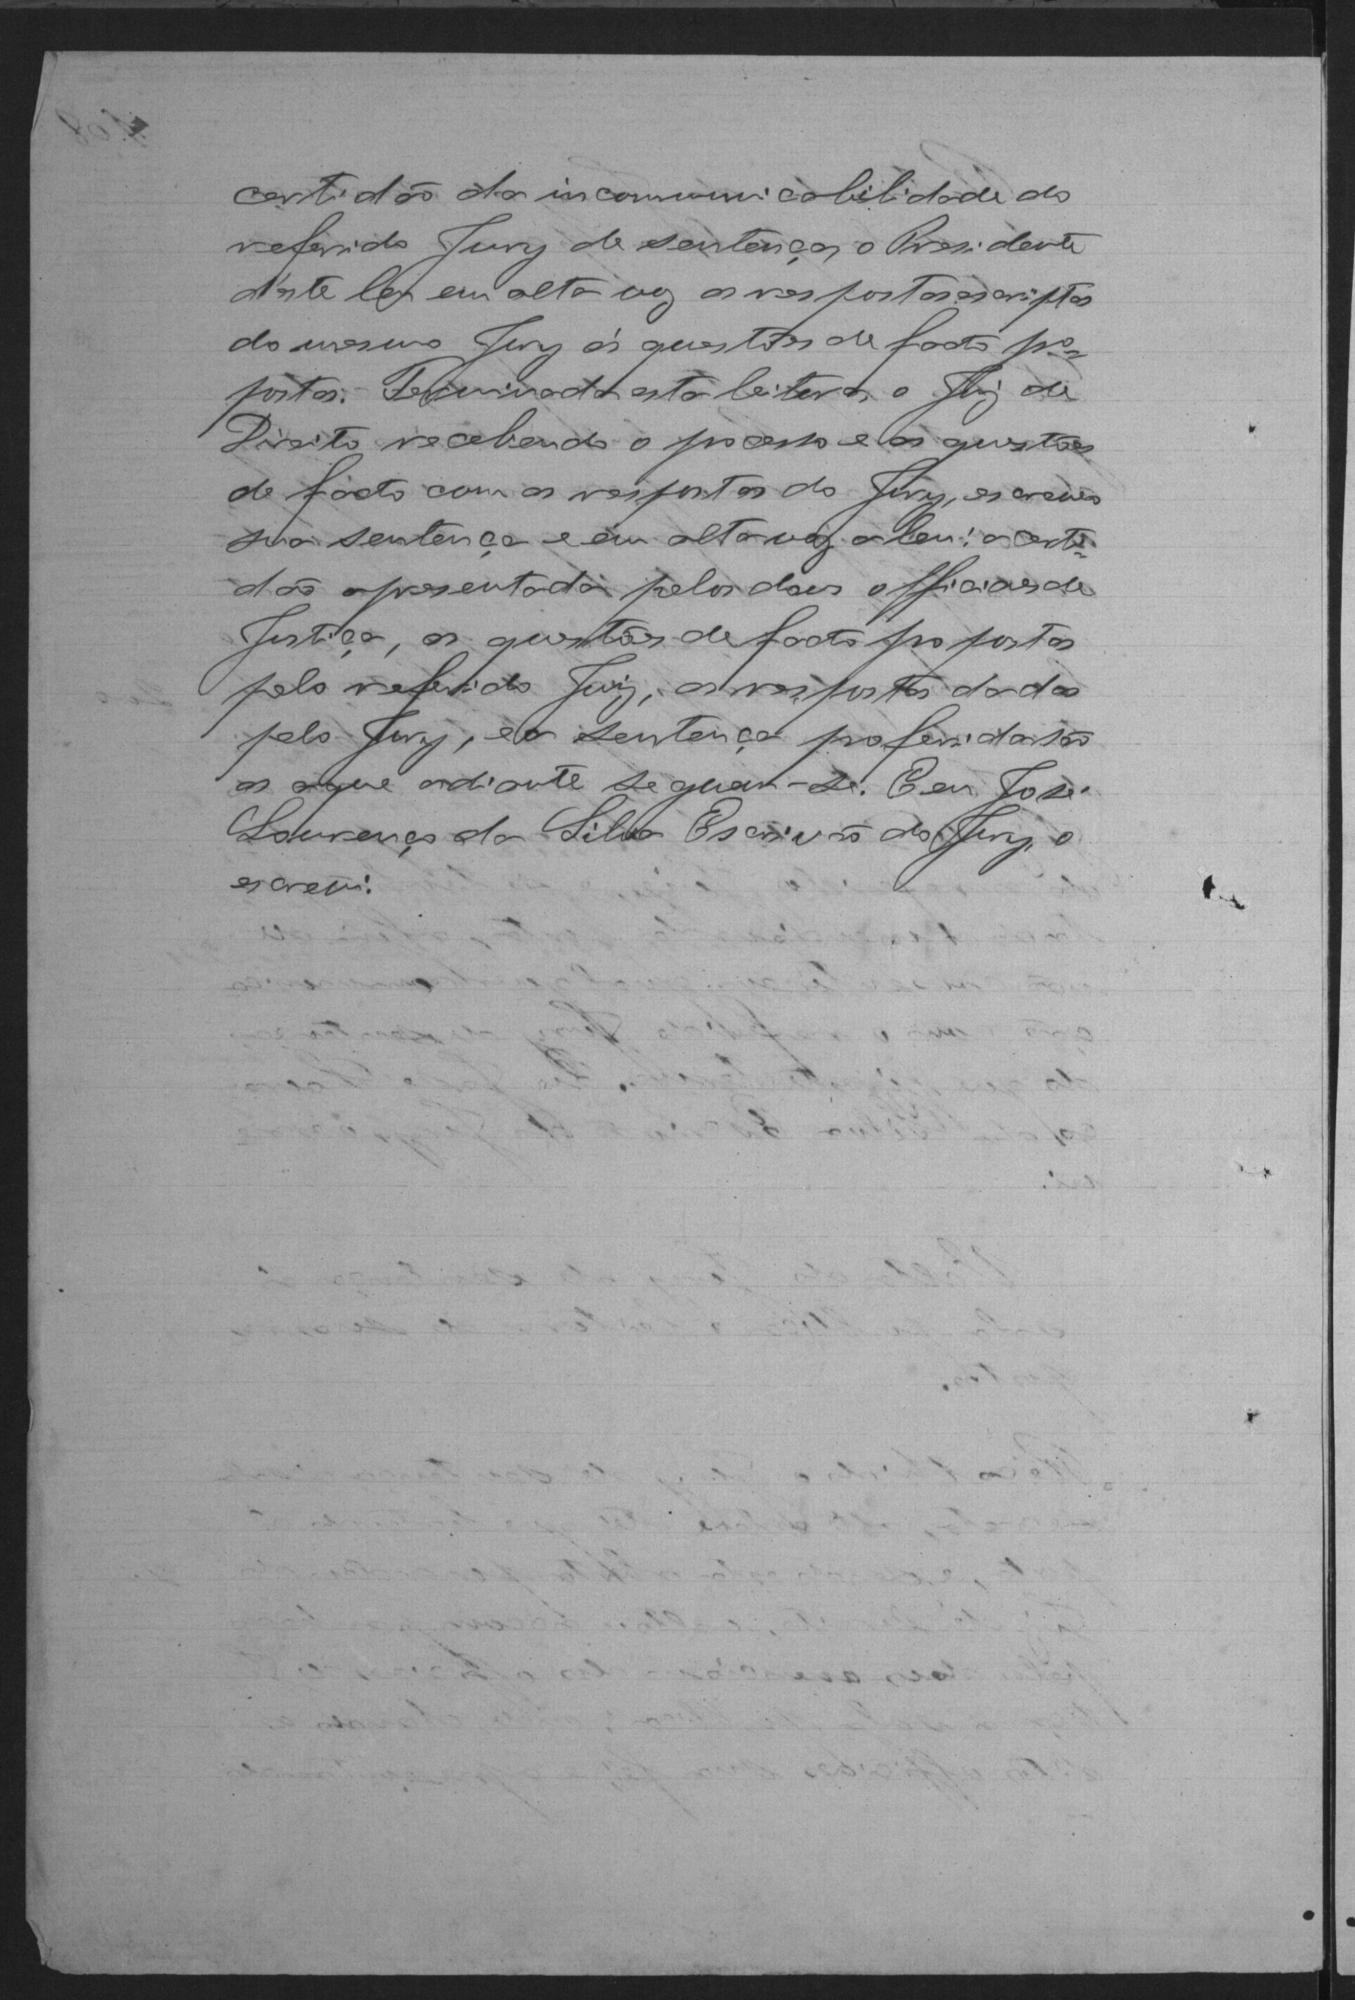 certidão da incommunicabilidade do
referido Jury de sentença, o Presidente
d'este leu em alta voz as respostas escriptas
do mesmo Jury ás questões de facto pro-
postas. Terminada esta leitura, o Juiz de
Direito recebendo o processo e as questões
de facto com as respostas do Jury, escreveu
sua sentença e em alta voz a leu: a certi-
dão apresentada pelos dous officiaes de
Justiça, as questões de facto propostas
pelo referido Juiz, as respostas dadas
pelo Jury, e a sentença proferida são
as que adiante seguem-se. E eu José
Lourenço da Silva Escrivão do Jury, o
escrevi.